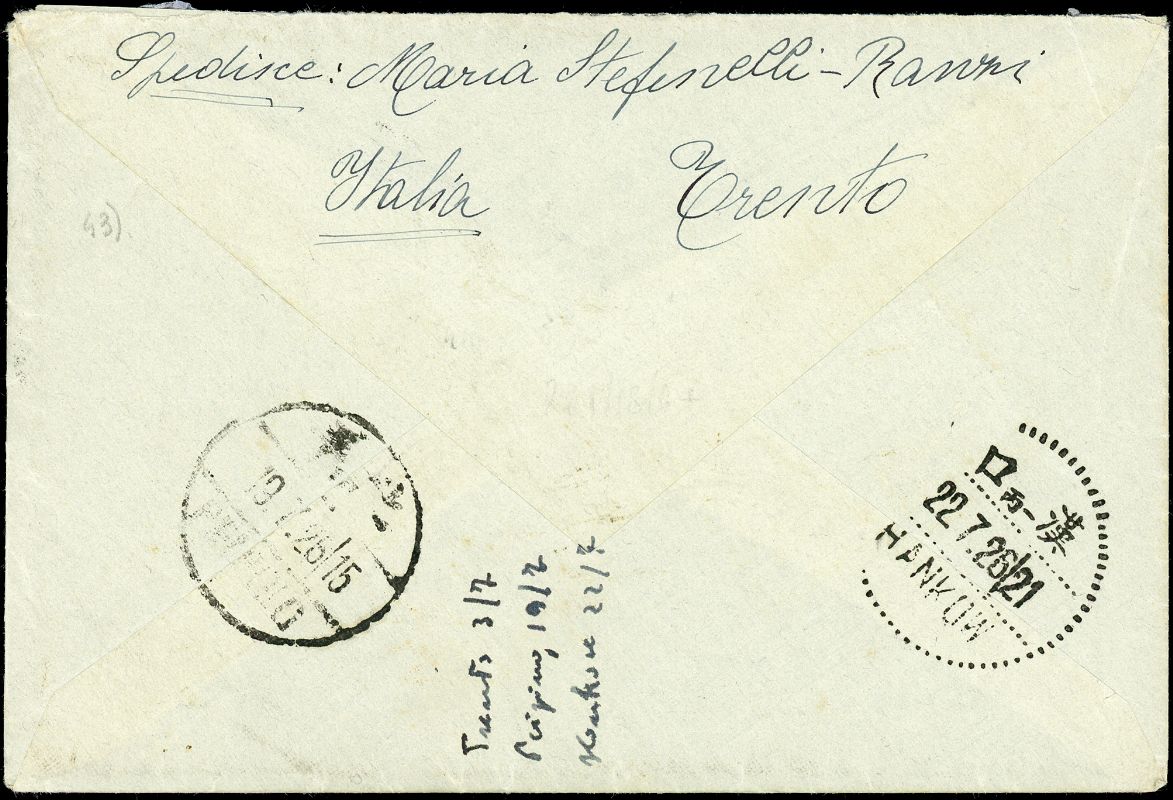 Spedisce: Maria Stefenelli-Ranzi
Italia Trento
43)
北平
19.7.26/15
PEIPING
漢口
丙一
22.7.26/21
HANKOW
Trento 3/7
Peipino, 19/7
Hankow 22/7